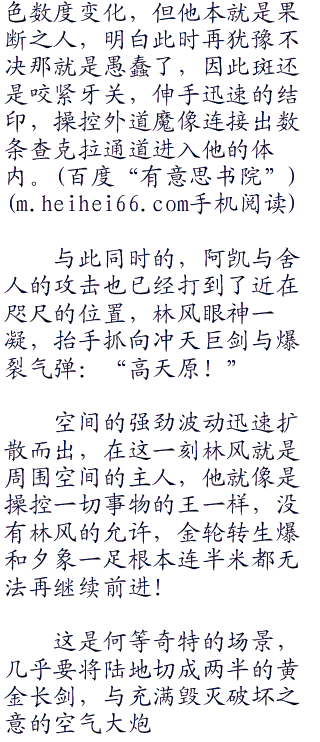 色数度变化，但他本就是果
断之人，明白此时再犹豫不
决那就是愚蠢了，因此斑还
是咬紧牙关，伸手迅速的结
印，操控外道魔像连接出数
条查克拉通道进入他的体
内。(百度“有意思书院”)
(m.heihei66.com手机阅读)
与此同时的，阿凯与舍
人的攻击也已经打到了近在
咫尺的位置，林风眼神一
凝，抬手抓向冲天巨剑与爆
裂气弹：“高天原！”
空间的强劲波动迅速扩
散而出，在这一刻林风就是
周围空间的主人，他就像是
操控一切事物的王一样，没
有林风的允许，金轮转生爆
和夕象一足根本连半米都无
法再继续前进！
这是何等奇特的场景，
几乎要将陆地切成两半的黄
金长剑，与充满毁灭破坏之
意的空气大炮